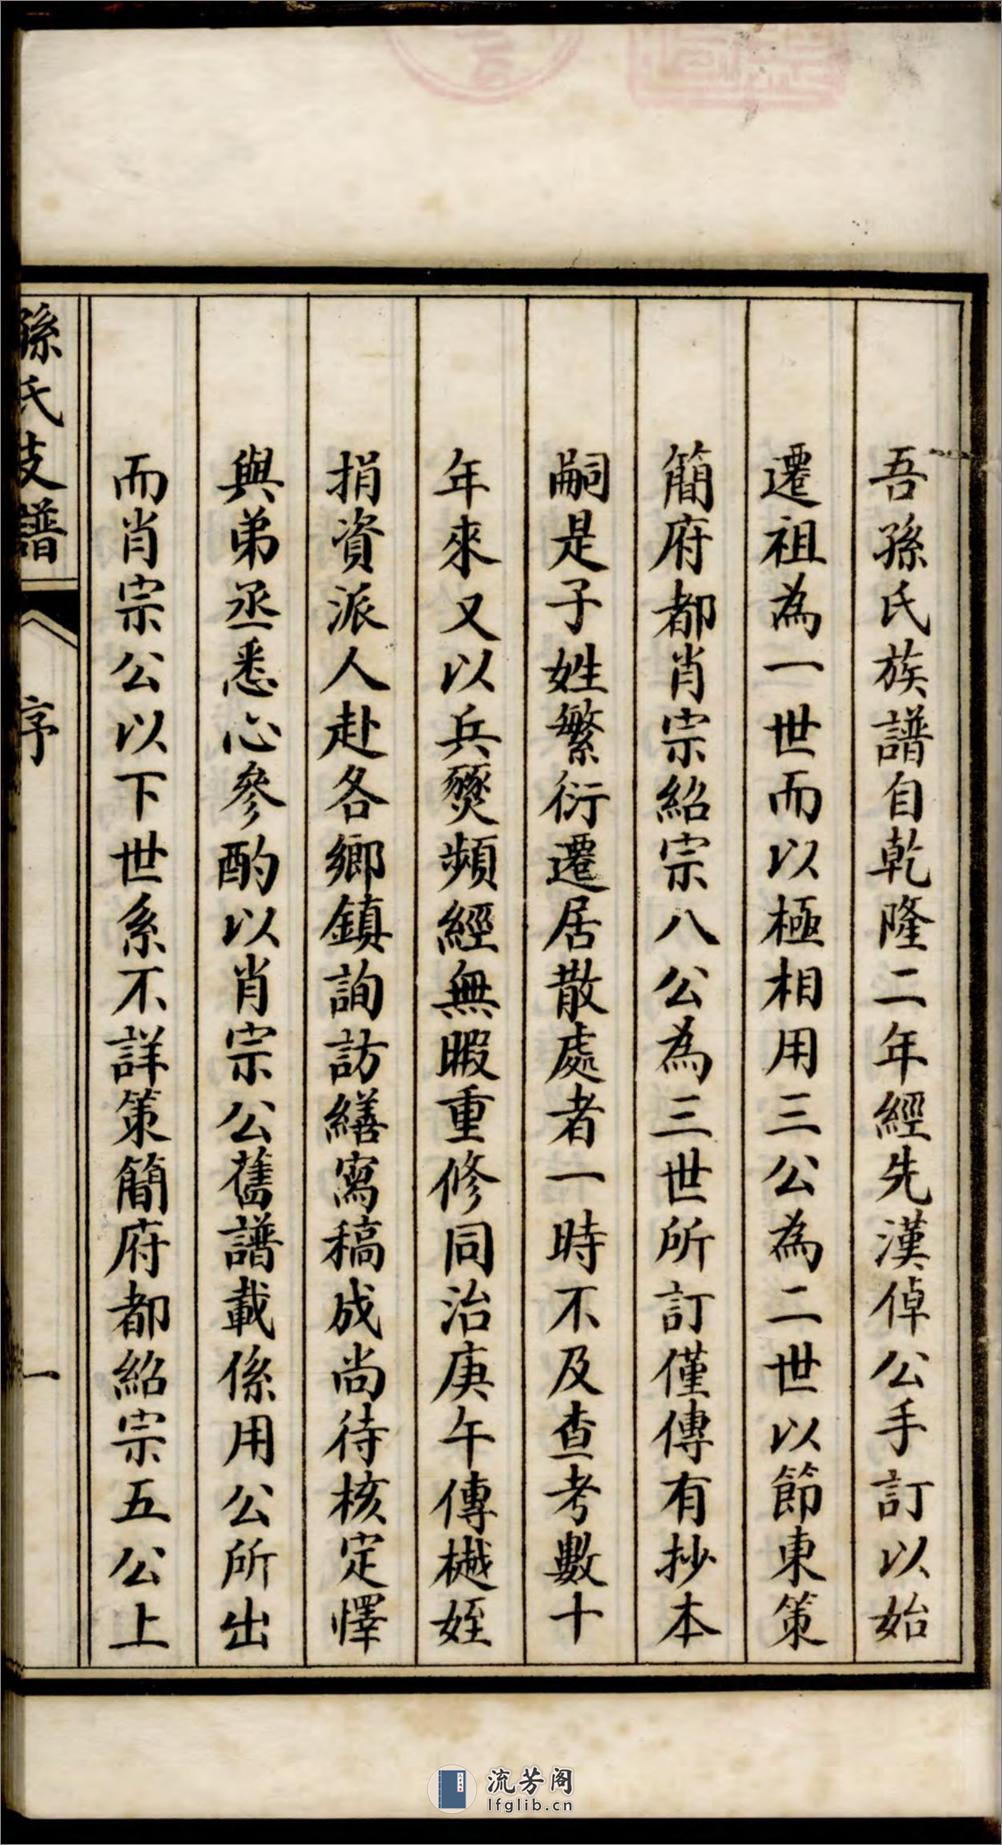 吾孫氏族譜自乾隆二年經先漢倬公手訂以始
遷祖為一世而以極相用三公為二世以節東策
簡府都肖宗紹宗八公為三世所訂僅傳有抄本
嗣是子姓繁衍遷居散處者一時不及查考數十
年來又以兵燹頻經無暇重修同治庚午傳樾姪
捐資派人赴各鄉鎮詢訪繕寫稿成尚待核定懌
與弟丞悉心參酌以肖宗公舊譜載係用公所出
而肖宗公以下世系不詳策簡府都紹宗五公上
孫氏支譜
序
一
流芳阁
lfglib.cn